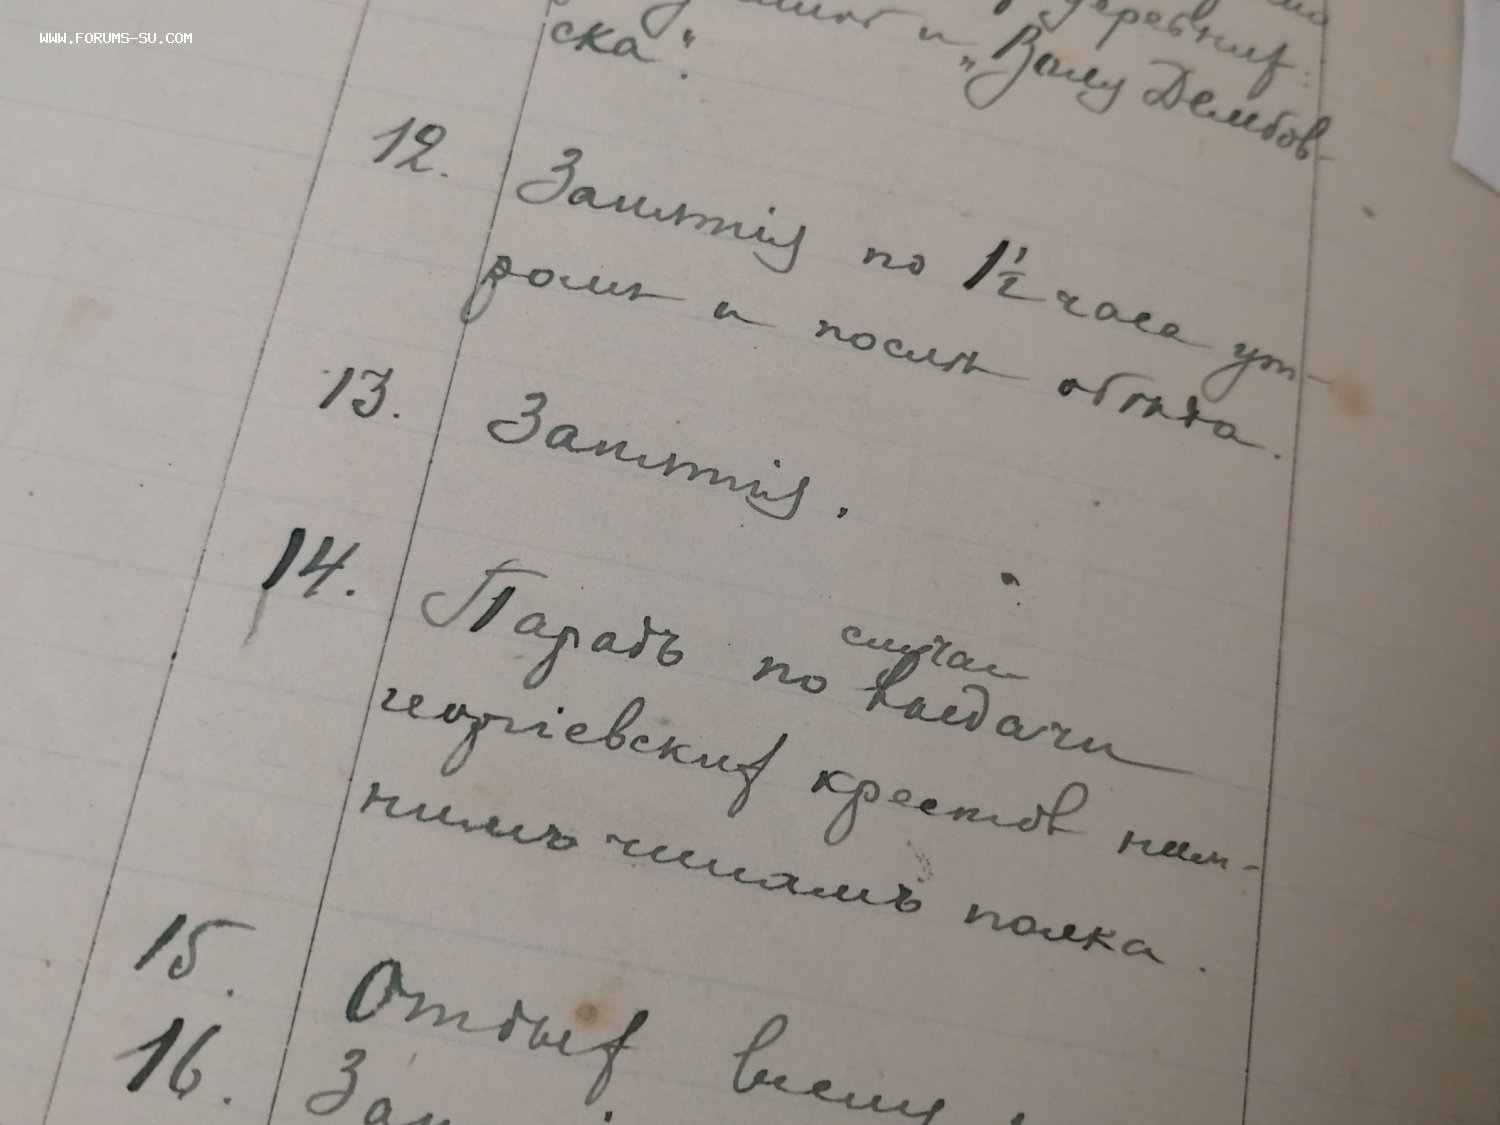 WWW.FORUMS-SU.COM
деревних
и „Волу Дембов-
ска".
12. Занятія по 1½ часа ут-
ромъ и послѣ обѣда.
13. Занятія.
14. Парадъ по случаю выдачи
георгіевских крестов ниж-
нимъ чинамъ полка.
15. Отдых всему
16. Зан